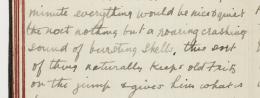 minute everything would be nice & quiet
the next nothing but a roaring crashing
sound of bursting shells, this sort
of thing naturally keeps old Fritz
on the jump & gives him what is